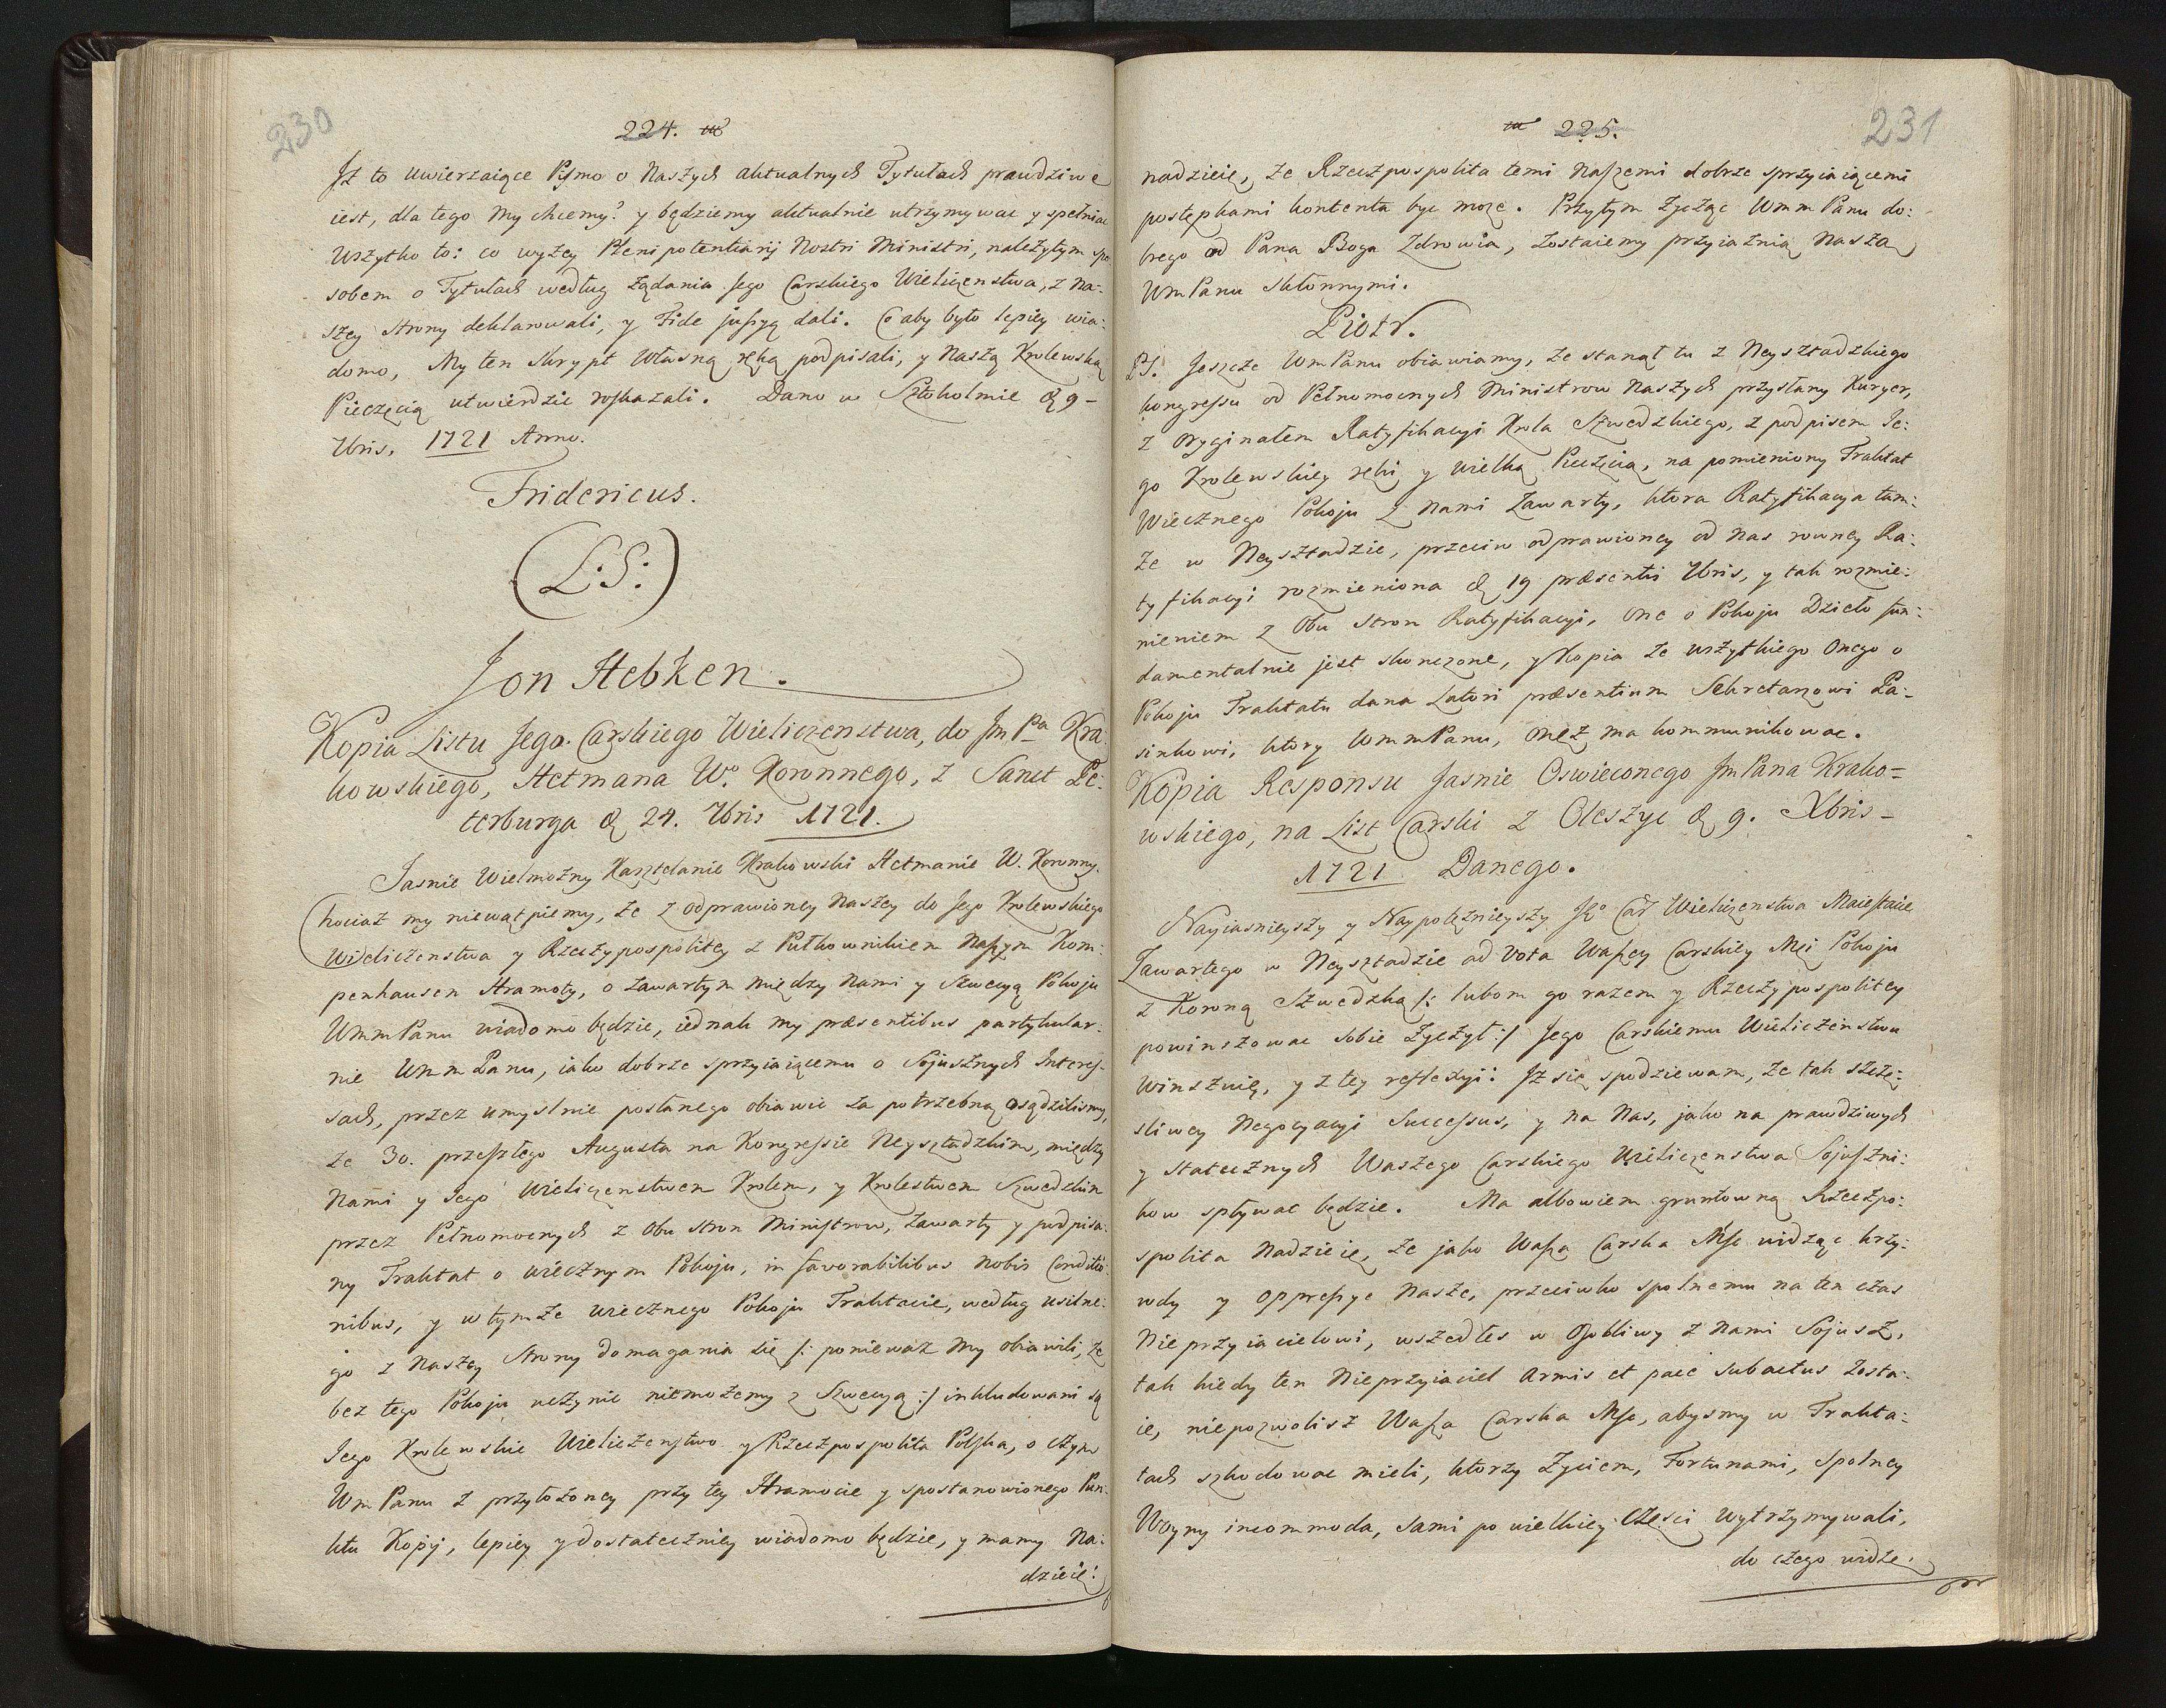 230
224.
Jż to uwierzaiące Pismo o Naszych aktualnych Tytułach prawdziwe
iest, dla tego my chcemy? y będziemy aktualnie utrzymywac y spełniac
Wszytko to: co wyzey Plenipotentiarij Nostri Ministri, należytym spo
sobem o Tytułach według żądania Jego Carskiego Wieliczenstwa, z na:
szey Strony deklarowali, y Fide jussyą dali. Co aby było lepiey wia:
domo, My ten Skrypt Własną ręką podpisali, y Naszą Krolewską
Pieczęcią utwierdzic roskazali. Dano w Sztokolmie d 9 -
7bris, 1721 Anno.
Fridericus.
(L:S:)
Jon Hebken.
Kopia Listu Jego Carskiego Wieliczenstwa, do Jm Pa Kra
kowskiego, Hetmana W.o Koronnego, z Sanct Pe:
terburga d 24. 7bris 1721.
Jasnie Wielmożny Kasztelanie Krakowski Hetmanie W. Koronny.
Chociaż my niewątpiemy, że z odprawioney Naszey do Jego Krolewskiego
Wieliczenstwa y Rzeczypospolitey z Pułkownikiem Naszym Kom:
penhausen Hramoty, o zawartym między Nami y Szwecyą Pokoju
WmmPanu wiadomo będzie, iednak my præsentibus partykular:
nie Wmm Panu, iako dobrze sprzyiaiącemu o Sojusznych Interes-
sach, przez umyslnie posłanego obiawic za potrzebną osądzilismy,
że 30. przeszłego Augusta na Kongressie Neysztadzkim, między
Nami y Jego Wieliczenstwem Krolem, y Krolestwem Szwedzkim
przez Pełnomocnych z Obu Stron Ministrow, zawarty y podpisa:
ny Traktat o wiecznym Pokoju, in favorabilibus nobis Conditio:
nibus, y w tymże wiecznego Pokoju Traktacie, według usilne:
go z Naszey Strony domagania się /: ponieważ my obiawili, że
bez tego Pokoju uczynic niemożemy z Szwecyą :/ inkludowani są
Jego Krolewskie Wieliczenstwo y Rzeczpospolita Polska, o czym
Wm Panu z przyłożoney przy tey Hramocie y spostanowionego Pun:
ktu Kopij, lepiey y dostateczniey wiadomo będzie, y mamy Na:
dzieię:
231
225.
nadzieię, że Rzeczpospolita temi Naszemi dobrze sprzyiaiącemi
postępkami kontenta byc może. Przytym życząc Wmm Panu do:
brego od Pana Boga Zdrowia, zostaiemy przyiaznią Naszą
WmPanu skłonnymi.
Piotr.
PS. Jeszcze WmPanu obiawiamy, że stanął tu z Neysztadzkiego
kongressu od Pełnomocnych Ministrow Naszych przysłany Kuryer,
z oryginałem Ratyfikacyi Krola Szwedzkiego, z podpisem Je:
go Krolewskiey ręki y wielką Pieczęcią, na pomieniony Traktat
Wiecznego Pokoju z Nami zawarty, ktora Ratyfikacya tam:
że w Neysztadzie, przeciw odprawioney od Nas rowney Ra:
tyfikacyi rozmieniona d 19 præsentis 7bris, y tak rozmie:
nieniem z Obu Stron Ratyfikacyi, One o Pokoju Dzieło fun:
damentalnie jest skonczone, y Kopia ze wszytkiego Onego o
Pokoju Traktatu dana Latori præsentium Sekretarzowi Pa-
sinkowi, ktory WmmPanu, oneż ma kommunikowac.
Kopia Responsu Jasnie Oswieconego JmPana Krako=
wskiego, na List Carski z Oleszyc d 9. Xbris -
1721 Danego.
Nayiasnieyszy y Naypotężnieyszy Jgo Car Wieliczenstwa Maiestacie
Zawartego w Neysztadzie ad Vota Waszey Carskiey Mci Pokoju
z Koroną Szwedzką /: lubom go razem y Rzeczypospolitey
powinszowac sobie życzył :/ Jego Carskiemu Wieliczenstwu
winszuię, y z tey reflexyi: Jż się spodziewam, że tak szczę:
sliwey Negocyacyi Successus, y na Nas, jako na prawdziwych
y statecznych Waszego Carskiego Wieliczenstwa Sojuszni:
kow spływac będzie. Ma albowiem gruntowną Rzeczpo:
spolita Nadzieię, że jako Wasza Carska Msc widząc krzy:
wdy y oppressye Nasze, przeciwko spolnemu na ten czas
Nieprzyiacielowi, wszedłes w Osobliwy z Nami Sojusz,
tak kiedy ten Nieprzyiaciel armis et pace subactus zosta:
ie, niepozwolisz Wasza Carska Msc, abysmy w Trakta:
tach szkodowac mieli, ktorzy Życiem, Fortunami, spolney
Woyny incommoda, sami po wielkiey części wytrzymywali,
do czego widzę.